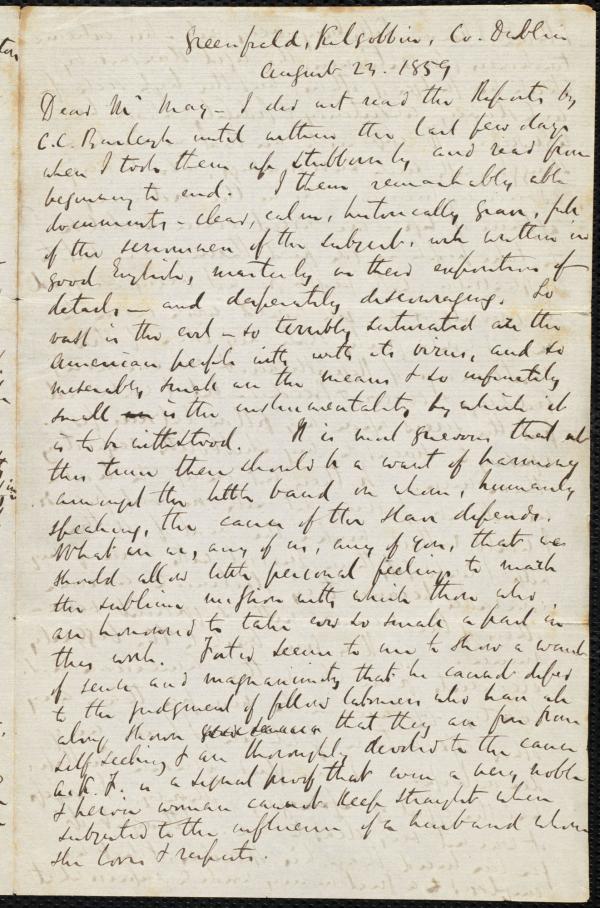 Greenfield, Kilgobbin, Co. Dublin
August 23. 1859
Dear Mr May - I did not read the Reports by
C.C. Burleigh until within the last few days
when I took them up stubbornly and read from
beginning to end. I them remarkably able
documents - clear, calm, historically grave, full
of the seriousness of the subject, well written in
good English, masterly in their exposition of
details - and desperately discouraging. So
vast is the evil - so terribly saturated are the
American people with its virus, and so
miserably small are the means & so infinitely
small is the instrumentality by which it
is to be withstood. It is most grievous that at
this time there should be a want of harmony
amongst the little band on whom, humanly
speaking, the cause of the slave depends.
What are we, any of us, any of you, that we
should allow little personal feelings to mar
the sublime mission with which those who
are honoured to take ever so small a part in
this work. Foster seems to me to show a want
of sense and magnanimity that he cannot defer
to the judgment of fellow labourers who have all
along shown that they are free from
self seeking & are thoroughly devoted to the cause.
A.K.F. is a signal proof that even a very noble
& heroic woman cannot keep straight when
subjected to the influence of a husband whom
she loves & respects.